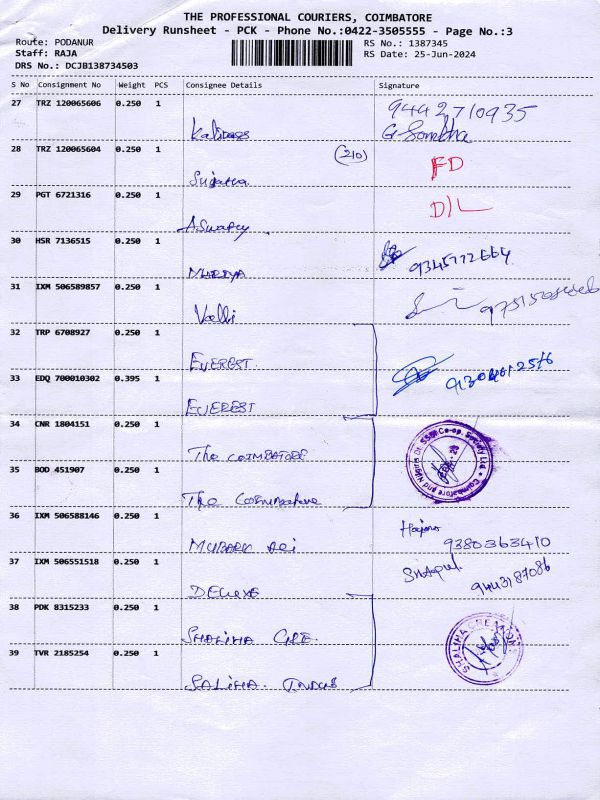 THE PROFESSIONAL COURIERS, COIMBATORE
Delivery Runsheet - PCK - Phone No.:0422-3505555 - Page No.:3
Route: PODANUR RS No.: 1387345
Staff: RAJA RS Date: 25-Jun-2024
DRS No.: DCJB138734503
S No Consignment No Weight PCS Consignee Details Signature
27 TRZ 120065606 0.250 1 9442710935
Kalidass
28 TRZ 120065604 0.250 1 (210) FD
Sujatha
29 PGT 6721316 0.250 1 D/L
30 HSR 7136515 0.250 1
31 IXM 506589857 0.250 1
Valli
32 TRP 6708927 0.250 1
EVEREST
33 EDQ 700010302 0.395 1
EVEREST
34 CNR 1804151 0.250 1
The COIMBATORE
35 BOD 451907 0.250 1
The Coimbatore
36 IXM 506588146 0.250 1
9380363410
37 IXM 506551518 0.250 1
9443187086
38 PDK 8315233 0.250 1
SHALIHA CREATIONS
39 TVR 2185254 0.250 1